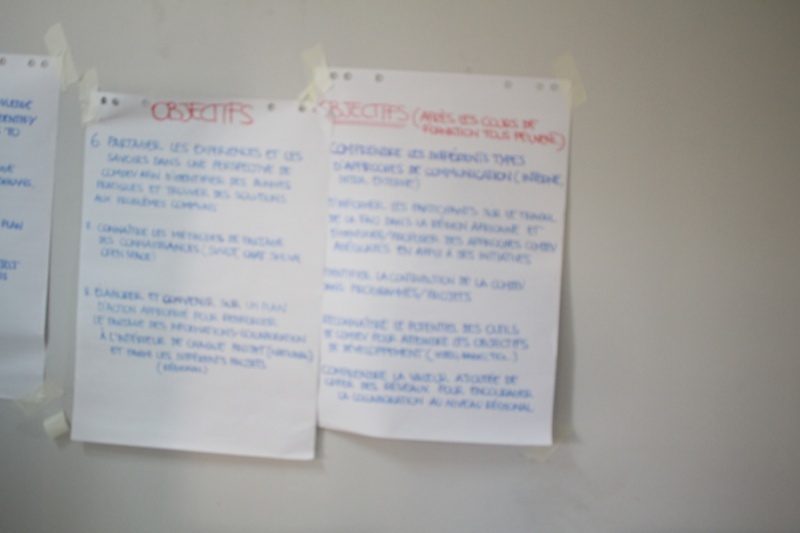 OBJECTIFS
6. PARTAGER LES EXPERIENCES ET LES
SAVOIRS DANS UNE PERSPECTIVE DE
COMDEV AFIN D'IDENTIFIER DES BONNES
PRATIQUES ET TROUVER DES SOLUTIONS
AUX PROBLÈMES COMMUNS
CONNAÎTRE LES MÉTHODES DE PARTAGE
DES CONNAISSANCES (
OPEN SPACE)
ELABORER ET CONVENIR SUR UN PLAN
D'ACTION APPROPRIÉ POUR RENFORCER
LE PARTAGE DES INFORMATIONS-COLLABORATION
À L'INTÉRIEUR DE CHAQUE PROJET (NATIONAL)
ET PARMI LES DIFFÉRENTS PROJETS
(RÉGIONAL)
OBJECTIFS (APRÈS LES COURS DE
FORMATION TOUS PEUVENT)
COMPRENDRE LES DIFFÉRENTS TYPES
D'APPROCHES DE COMMUNICATION (INTERNE,
EXTERNE)
S'INFORMER LES PARTICIPANTS SUR LE TRAVAIL
DE LA FAO DANS LA RÉGION AFRICAINE ET
D'IDENTIFIER/PROPOSER DES APPROCHES COMDEV
ADÉQUATES EN APPUI À DES INITIATIVES
IDENTIFIER LA CONTRIBUTION DE LA COMDEV
DANS PROGRAMMES/PROJETS
RECONNAÎTRE LE POTENTIEL DES OUTILS
DE COMDEV POUR ATTEINDRE LES OBJECTIFS
DE DÉVELOPPEMENT (VIDEO, RADIO, TIC..)
COMPRENDRE LA VALEUR AJOUTÉE DE
CRÉER DES RÉSEAUX POUR ENCOURAGER
LA COLLABORATION AU NIVEAU RÉGIONAL